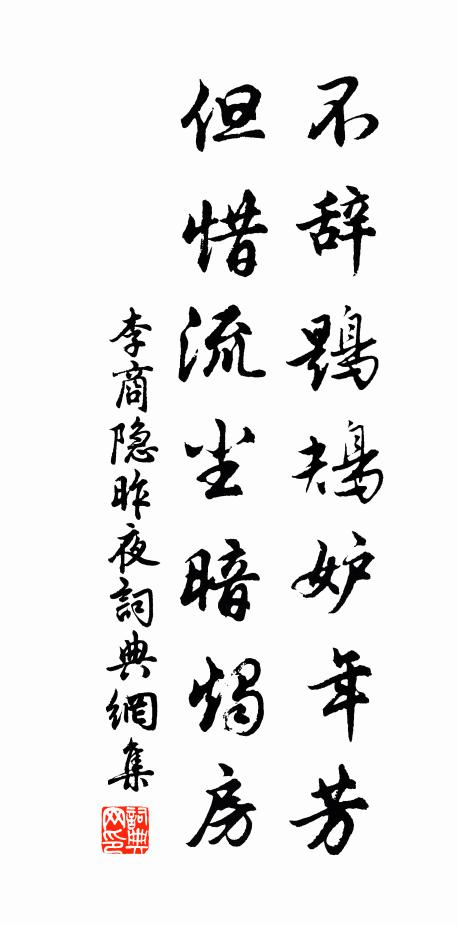 不辞鶗鴂妒年芳
但惜流尘暗烛房
李商隐昨夜詞典網集
詞典网印